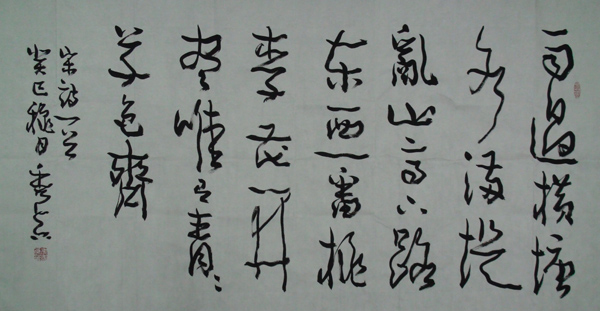 雨過横塘
水滿堤
亂山高下路
東西一番桃
李花開
盡唯有青々
草色齊
宋詩一首
癸巳穐月